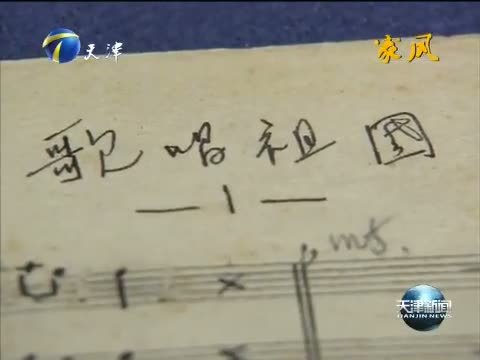 天津
家风
歌唱祖国
— 1 —
mf.
天津新闻
TIANJIN NEWS